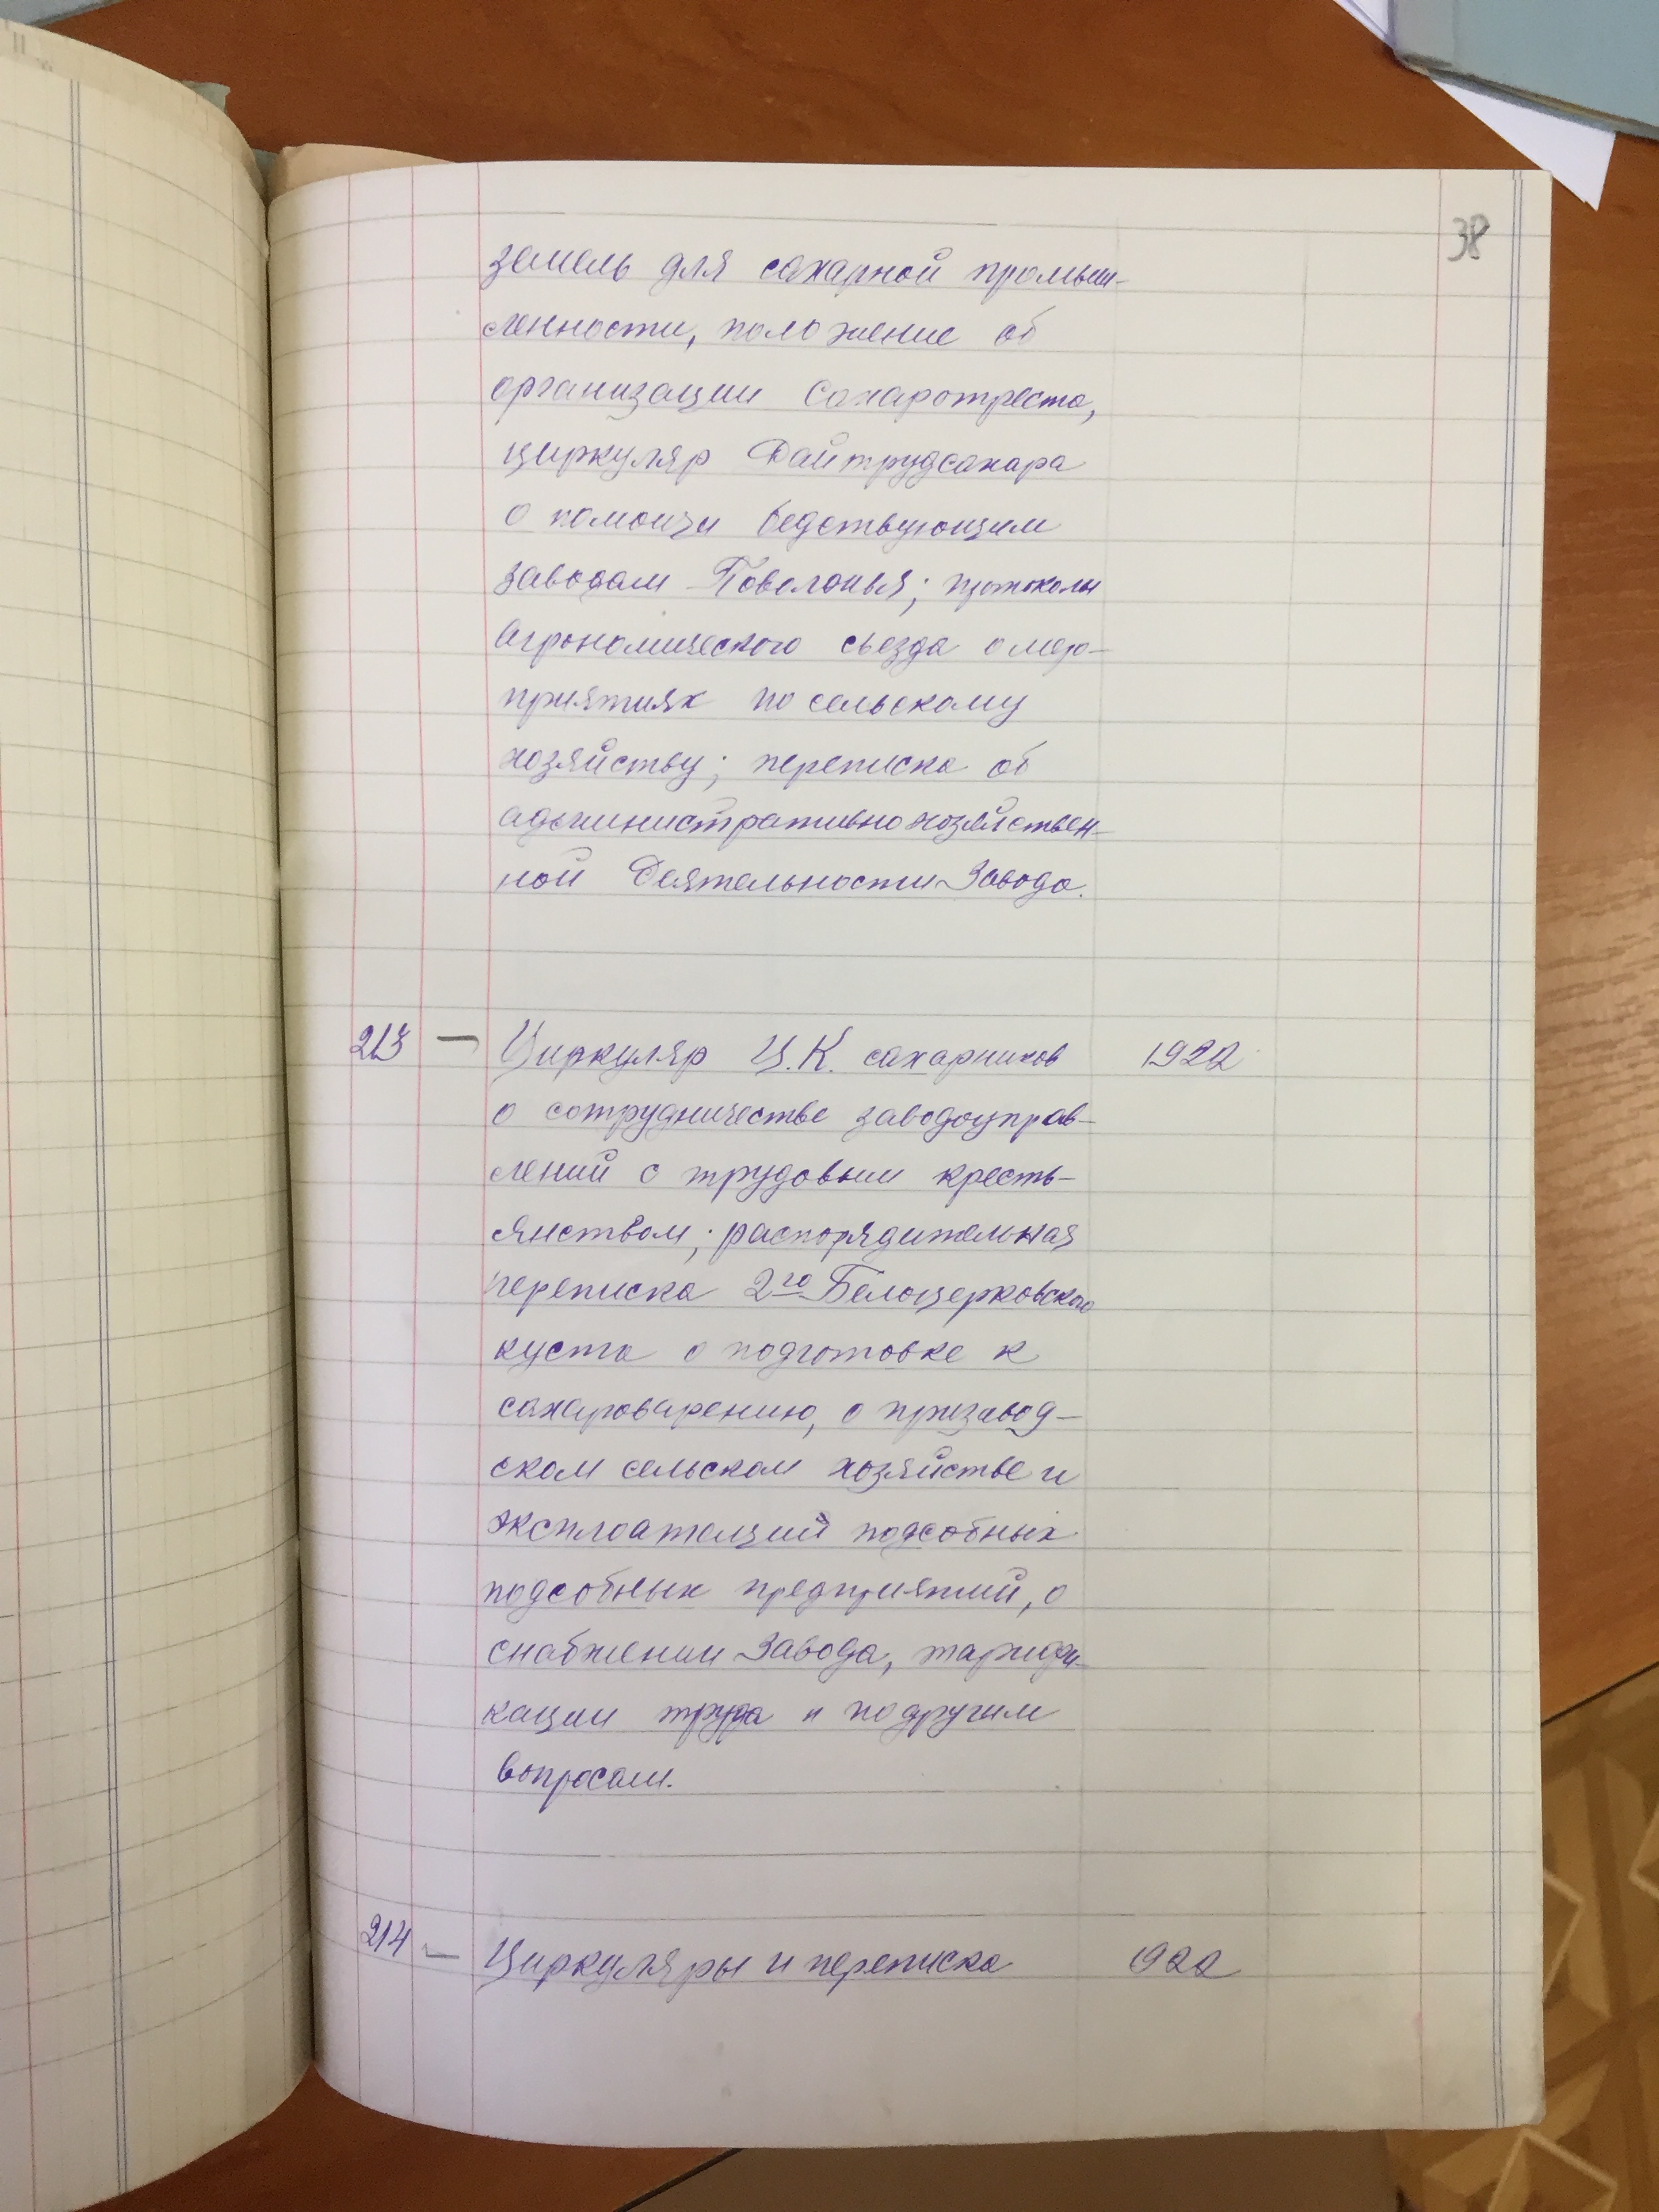 38
земель для сахарной промыш-
ленности, положение об
организации Сахаротреста,
циркуляр Райтрудсахара
о помощи бедствующим
заводам Поволжья; протоколы
Агрономического съезда о меро-
приятиях по сельскому
хозяйству; переписка об
административно хозяйствен-
ной деятельности завода.
213 — Циркуляр Ц.К. сахарников 1922
о сотрудничестве заводоуправ-
лений с трудовым кресть-
янством; распорядительная
переписка 2го Белоцерковского
куста о подготовке к
сахароварению, о призавод-
ском сельском хозяйстве и
эксплоатаций подсобных
подсобных предприятий, о
снабжении завода, тарифи-
кации труда и по другим
вопросам.
214 — Циркуляры и переписка 1922